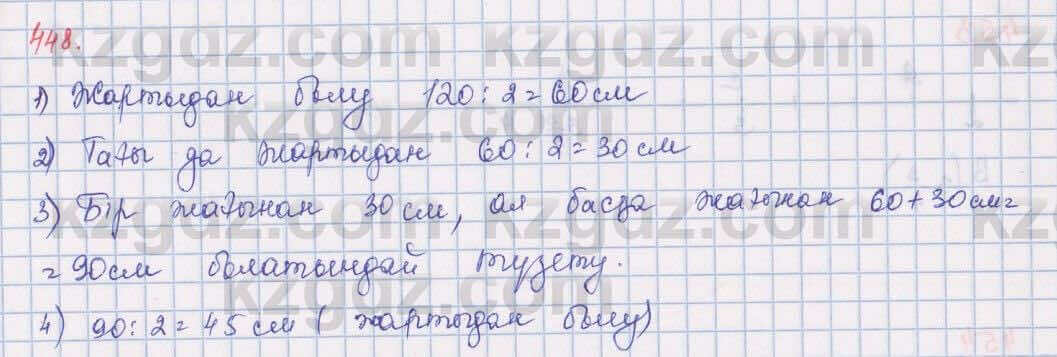 448.
1) Жартыдан бөлу 120 : 2 = 60 см
2) Тағы да жартыдан 60 : 2 = 30 см
3) Бір жағынан 30 см, ал басқа жағынан 60 + 30 см =
= 90 см болатындай түзету.
4) 90 : 2 = 45 см ( жартыдан бөлу)
kzgdz.com